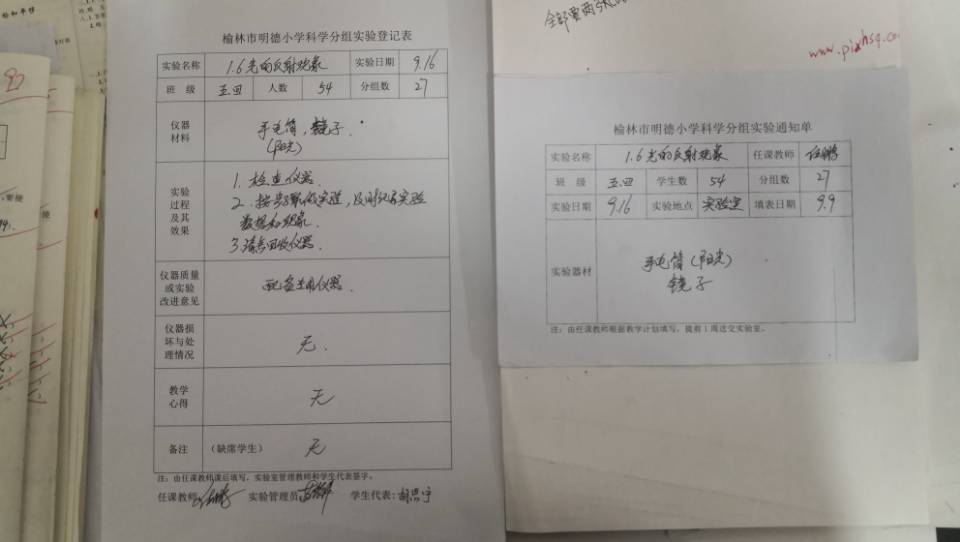 榆林市明德小学科学分组实验登记表
实验名称 1.6光的反射现象 实验日期 9.16
班 级 五.四 人数 54 分组数 27
仪器材料 手电筒,镜子.
(阳光)
实验过程及其效果
1. 检查仪器.
2. 按步骤做实验,及时记录实验
数据和现象.
3.清点回收仪器.
仪器质量或实验改进意见
仪器损坏与处理情况 无.
教学心得 无
备注 (缺席学生) 无
注:由任课教师课后填写,实验室管理教师和学生代表签字。
任课教师: 实验管理员: 学生代表:
全部要两张
榆林市明德小学科学分组实验通知单
实验名称 1.6光的反射现象 任课教师
班 级 五.四 学生数 54 分组数 27
实验日期 9.16 实验地点 实验室 填表日期 9.9
实验器材 手电筒(阳光)
镜子
注:由任课教师根据教学计划填写,提前1周送交实验室。